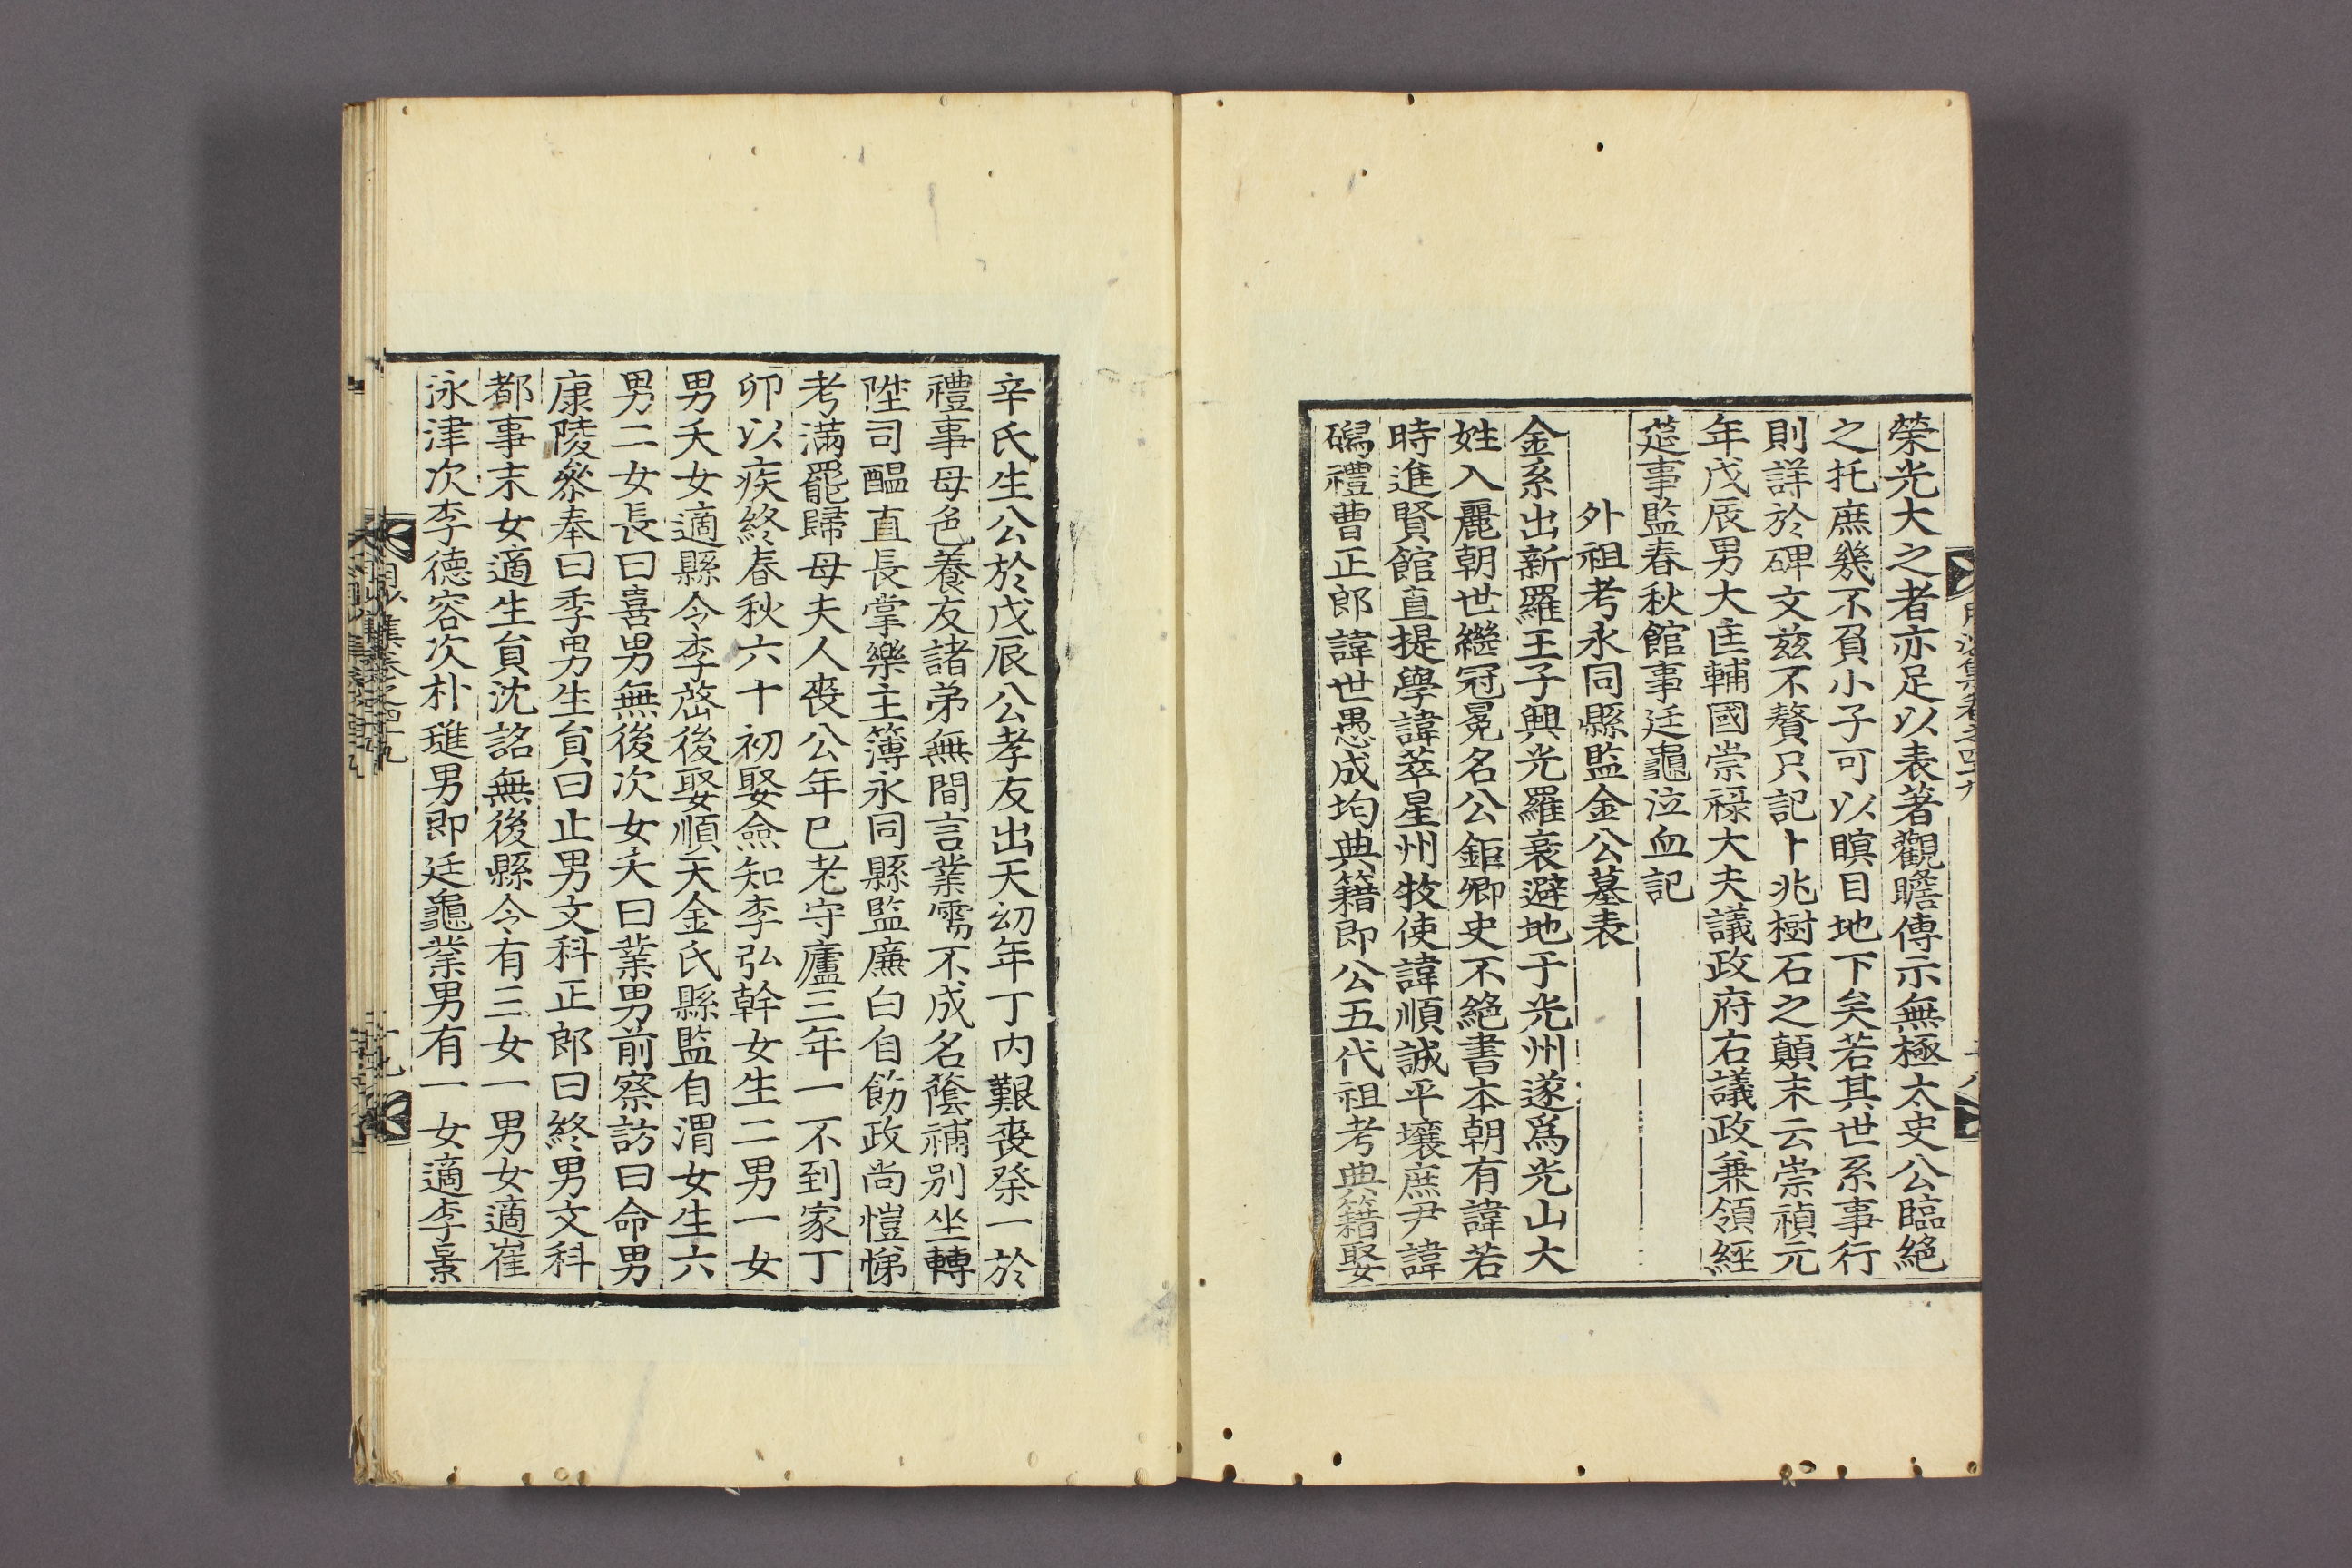 榮光大之者亦足以表著觀瞻傳示無極太史公臨絕
之托庶幾不負小子可以瞑目地下矣若其世系事行
則詳於碑文玆不贅只記卜兆樹石之顛末云崇禎元
年戊辰男大匡輔國崇祿大夫議政府右議政兼領經
莚事監春秋館事廷龜泣血記
外祖考永同縣監金公墓表
金系出新羅王子興光羅衰避地于光州遂爲光山大
姓入麗朝世繼冠冕名公鉅卿史不絕書本朝有諱若
時進賢館直提學諱萃星州牧使諱順誠平壤庶尹諱
礪禮曹正郎諱世愚成均典籍即公五代祖考典籍娶
辛氏生公於戊辰公孝友出天幼年丁內艱喪祭一於
禮事母色養友諸弟無間言業儒不成名蔭補別坐轉
陞司醞直長掌樂主簿永同縣監廉白自飭政尚愷悌
考滿罷歸母夫人喪公年已老守廬三年一不到家丁
卯以疾終春秋六十初娶僉知李弘幹女生二男一女
男夭女適縣令李啓後娶順天金氏縣監自渭女生六
男二女長曰喜男無後次女夭曰業男前察訪曰命男
康陵參奉曰季男生員曰止男文科正郎曰終男文科
都事末女適生員沈詻無後縣令有三女一男女適崔
泳津次李德容次朴璡男即廷龜業男有一女適李景
月沙集卷之四十九
十九